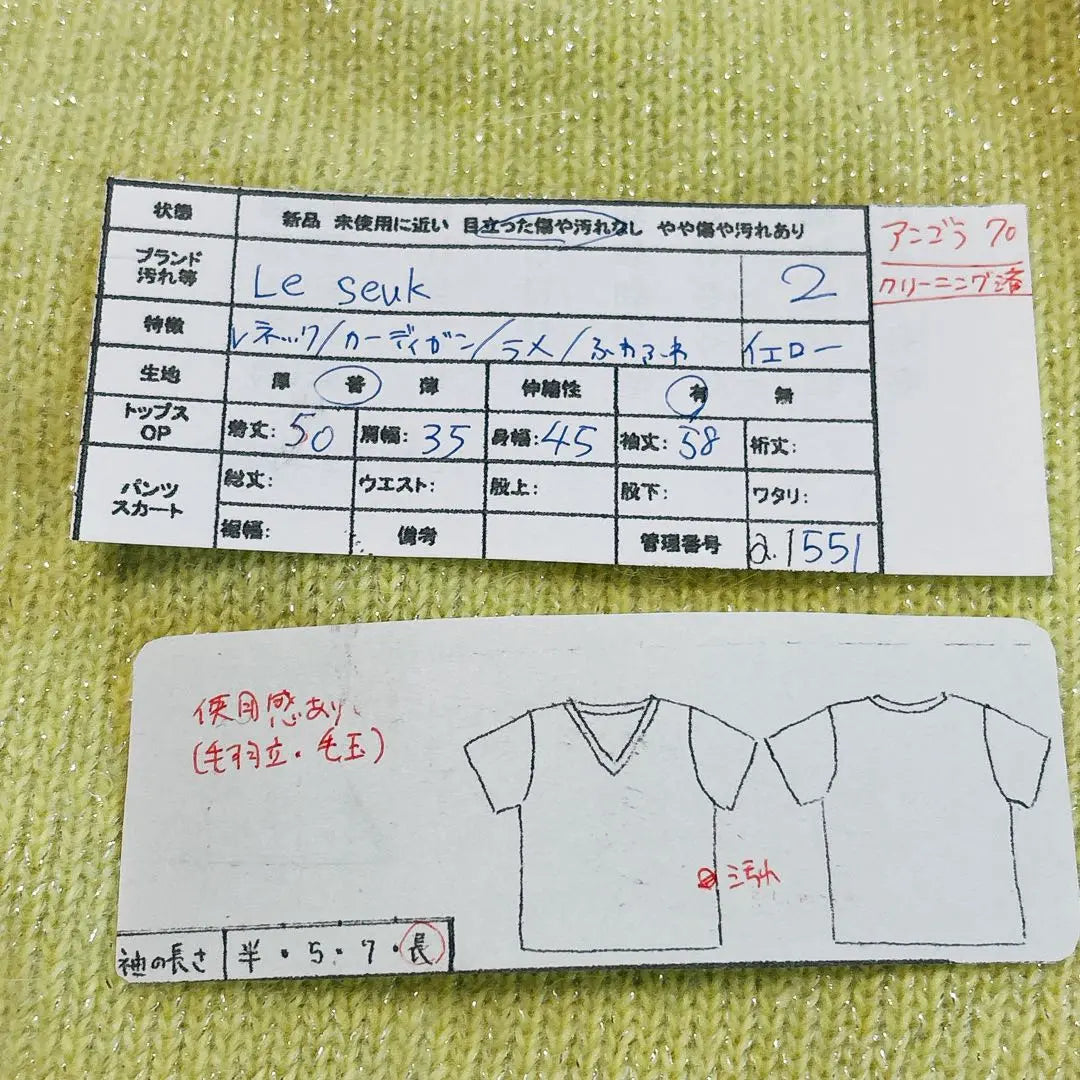 状態 新品 未使用に近い 目立った傷や汚れなし やや傷や汚れあり
アンゴラ 70
クリーニング済
ブランド
汚れ等
Le seuk 2
特徴 Vネック/カーディガン/ラメ/ふわふわ イエロー
生地 厚 普 薄 伸縮性 有 無
トップス
OP
着丈: 50 肩幅: 35 身幅: 45 袖丈: 58 裄丈:
パンツ
スカート
総丈: ウエスト: 股上: 股下: ワタリ:
裾幅: 備考 管理番号 a.1551
使用感あり
(毛羽立・毛玉)
汚れ
袖の長さ 半・5・7・長